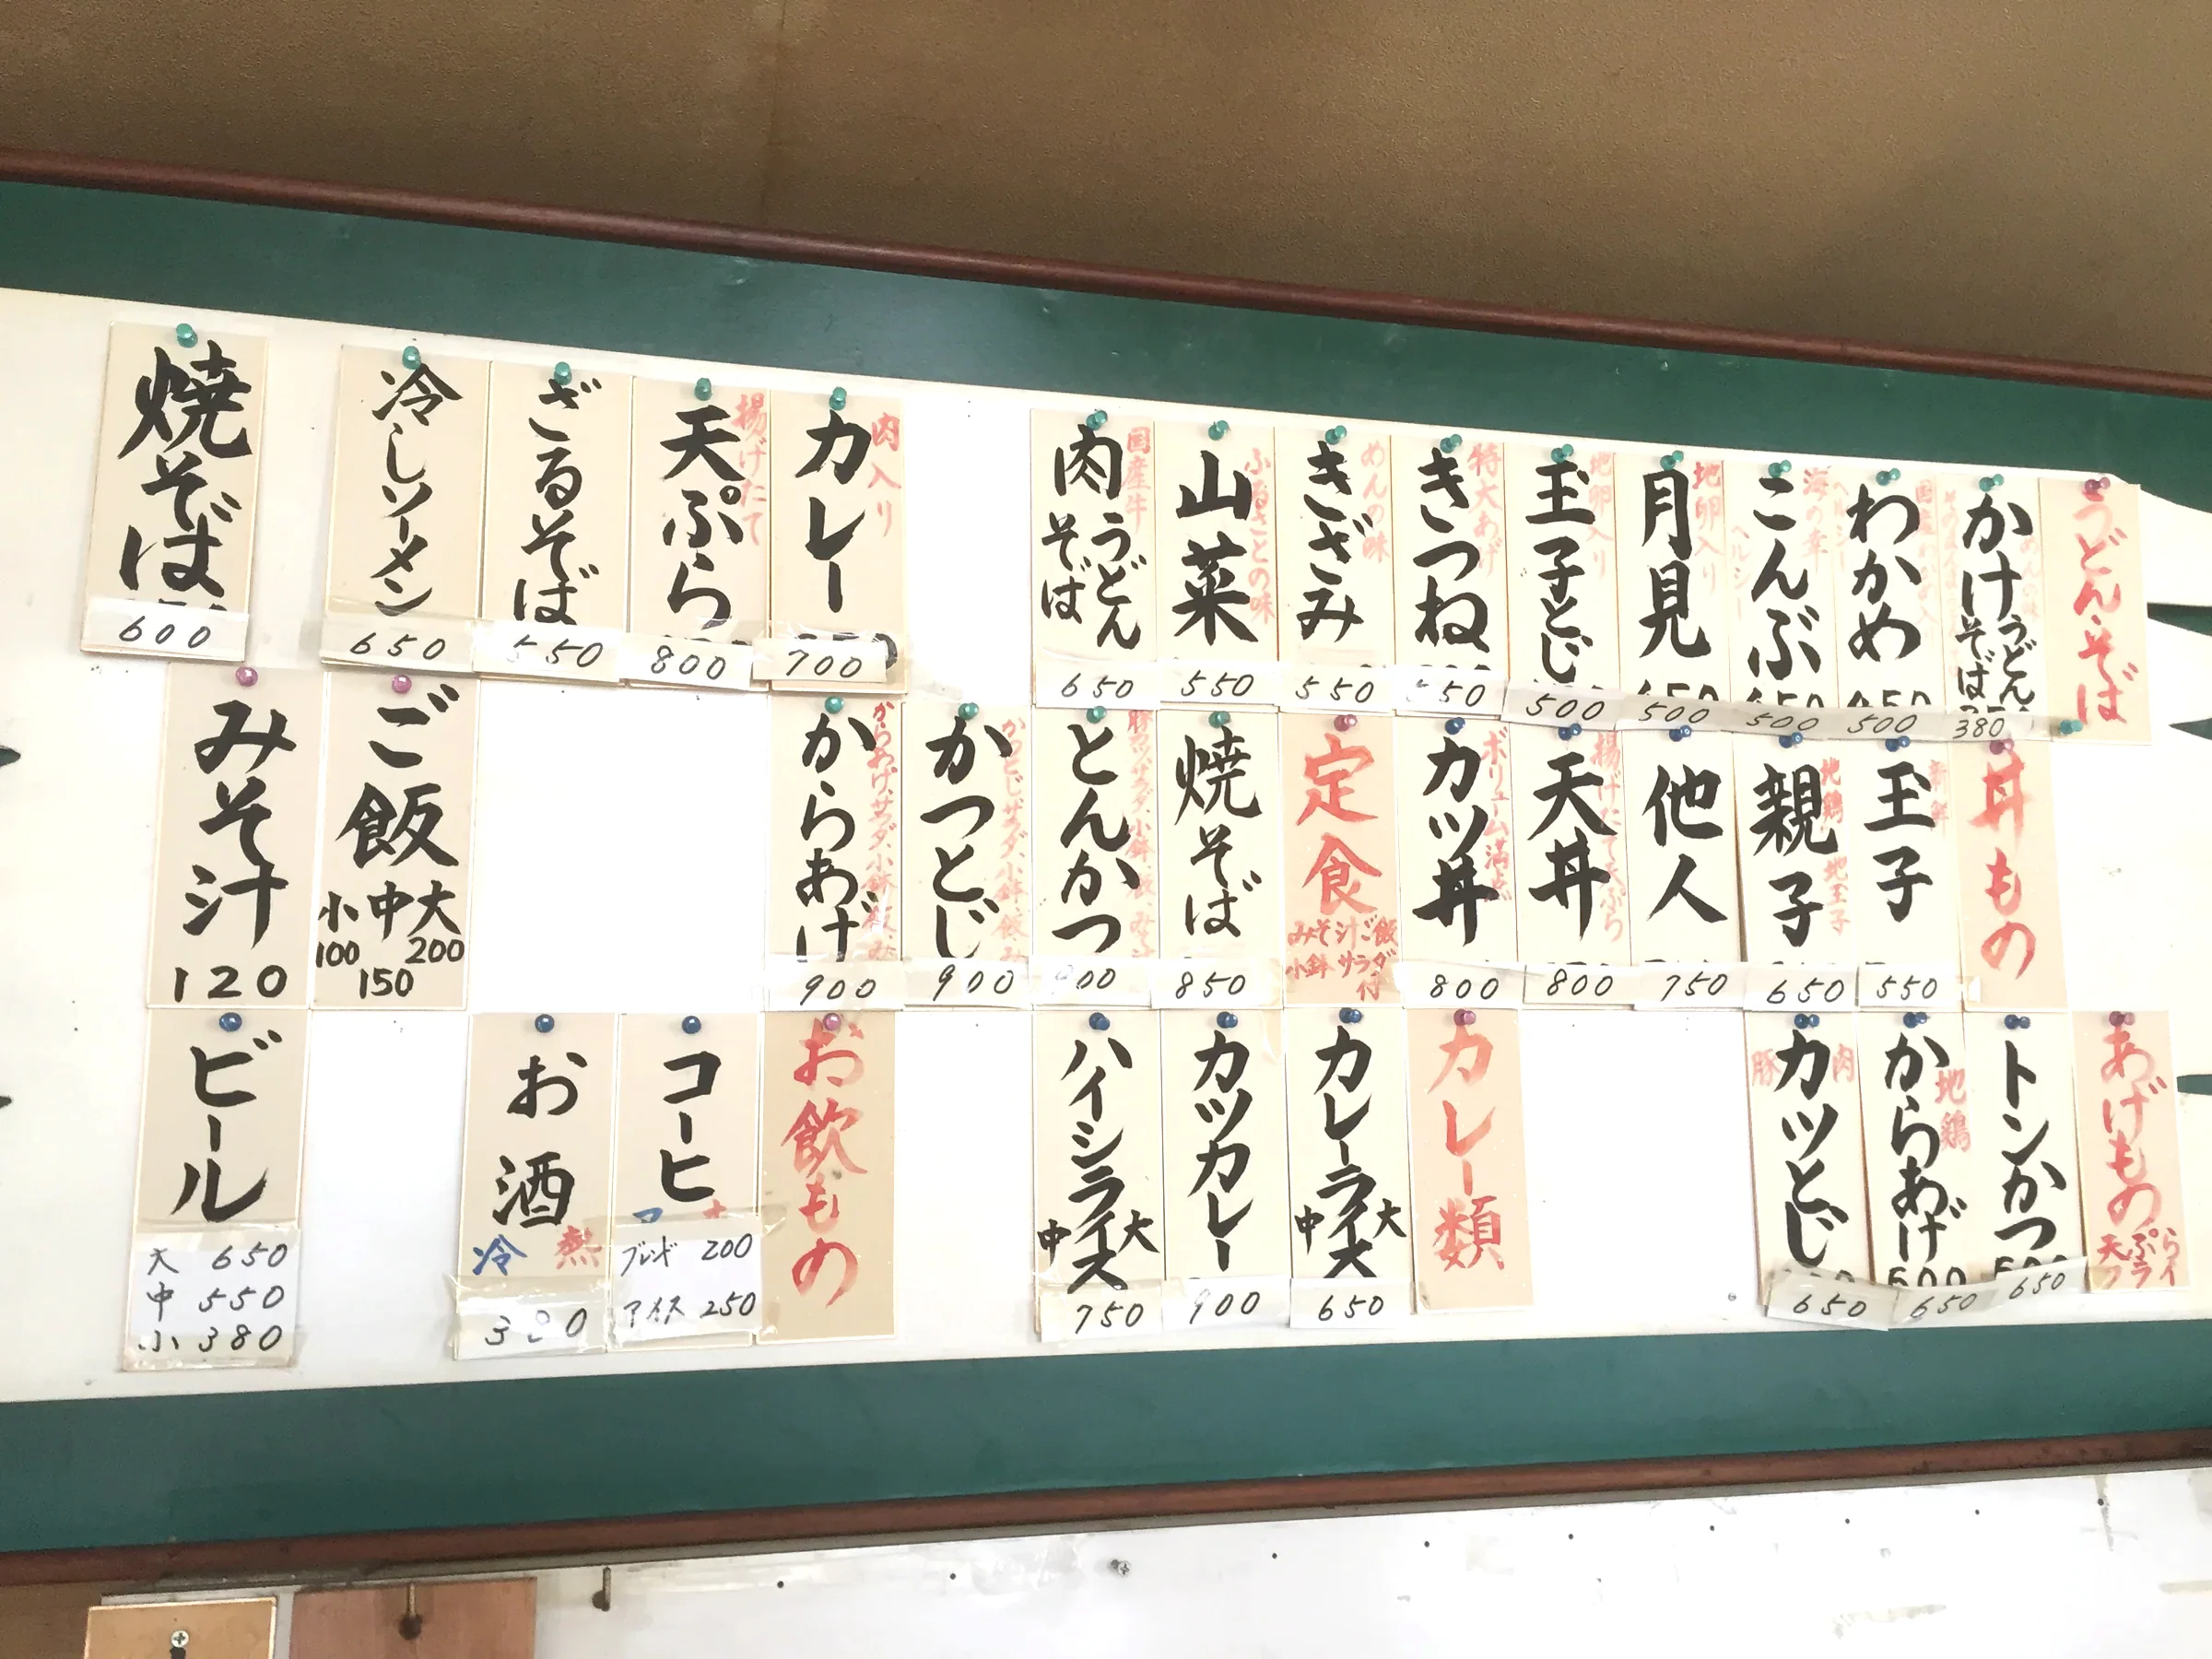 うどん・そば
かけうどん
そば
380
わかめ
500
こんぶ
海の幸
ヘルシー
500
月見
地卵入り
500
玉子とじ
地卵入り
500
きつね
特大あげ
550
きざみ
めんの味
550
山菜
ふるさとの味
550
肉うどん
そば
国産牛
650
カレー
肉入り
700
天ぷら
揚げたて
800
ざるそば
550
冷しソーメン
650
焼そば
600
丼もの
玉子
新鮮
550
親子
地鶏
地玉子
650
他人
750
天丼
揚げたて天ぷら
800
カツ丼
ボリューム満点
800
定食
みそ汁ご飯
小鉢サラダ
付
焼そば
850
とんかつ
900
かつとじ
かつとじ、サラダ、小鉢、ご飯、み
900
からあげ
からあげ、サラダ、小鉢、ご飯、み
900
ご飯
大
200
中
150
小
100
みそ汁
120
あげもの
天ぷら
フライ
トンかつ
650
からあげ
地鶏
650
カツとじ
豚肉
650
カレー類
カレーライス
大
中
650
カツカレー
900
ハイシライス
大
中
750
お飲もの
コーヒ
ブレンド 200
アイス 250
お酒
熱
冷
380
ビール
大 650
中 550
小 380